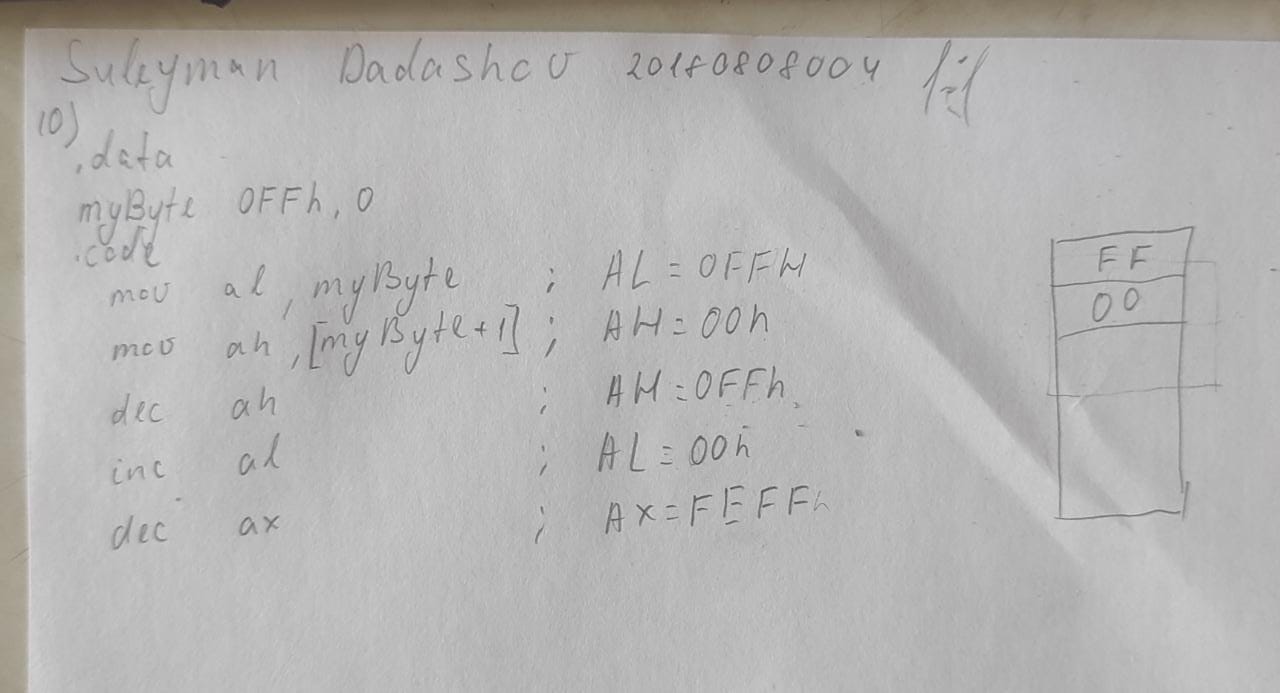 Suleyman Dadashov 20180808004
10)
.data
myByte OFFh, 0
.code
mov al, myByte ; AL = OFFH
mov ah, [myByte+1] ; AH = 00h
dec ah ; AH = OFFh
inc al ; AL = 00h
dec ax ; AX = FEFFh
FF
00